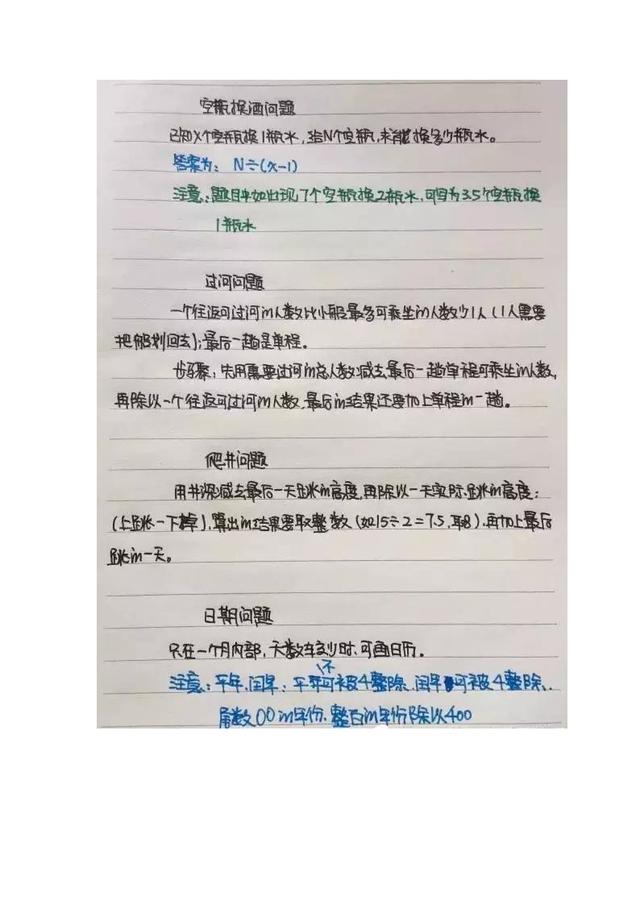 空瓶换酒问题
已知X个空瓶换1瓶水，给N个空瓶，求能换多少瓶水。
答案为：N÷(x-1)
注意：题目中如出现7个空瓶换2瓶水，可归为3.5个空瓶换
1瓶水
过河问题
一个往返可过河的人数比小船最多可乘坐的人数少1人（1人需要
把船划回去）；最后一趟是单程。
步骤：先用需要过河的总人数减去最后一趟单程可乘坐的人数，
再除以一个往返可过河的人数，最后的结果还要加上单程的一趟。
爬井问题
用井深减去最后一天跳的高度，再除以一天实际跳的高度：
(上跳-下掉)，算出的结果要取整数(如15÷2=7.5,取8)，再加上最后
跳的一天。
日期问题
只在一个月内部，天数较少时，可画日历。
注意：平年、闰年：平年不可被4整除，闰年可被4整除、
尾数00的年份、整百的年份除以400